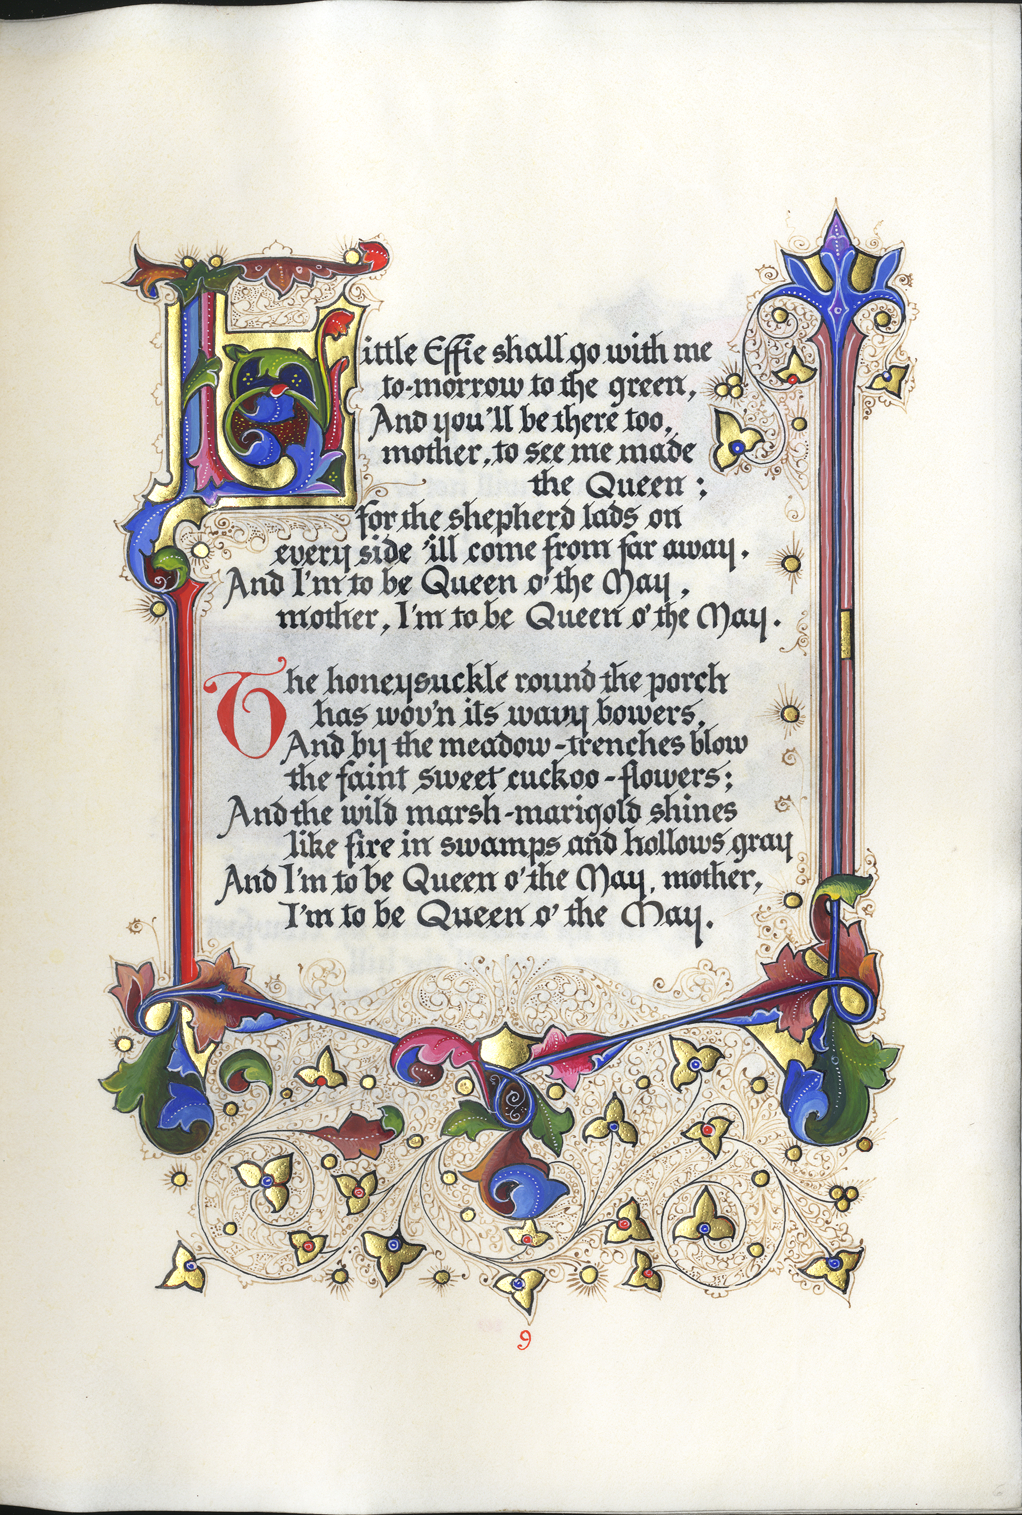 Little Effie shall go with me
to-morrow to the green,
And you'll be there too,
mother, to see me made
the Queen;
for the shepherd lads on
every side 'ill come from far away,
And I'm to be Queen o' the May,
mother, I'm to be Queen o' the May.
The honeysuckle round the porch
has wov'n its wavy bowers,
And by the meadow-trenches blow
the faint sweet cuckoo-flowers;
And the wild marsh-marigold shines
like fire in swamps and hollows gray
And I'm to be Queen o' the May, mother,
I'm to be Queen o' the May.
9